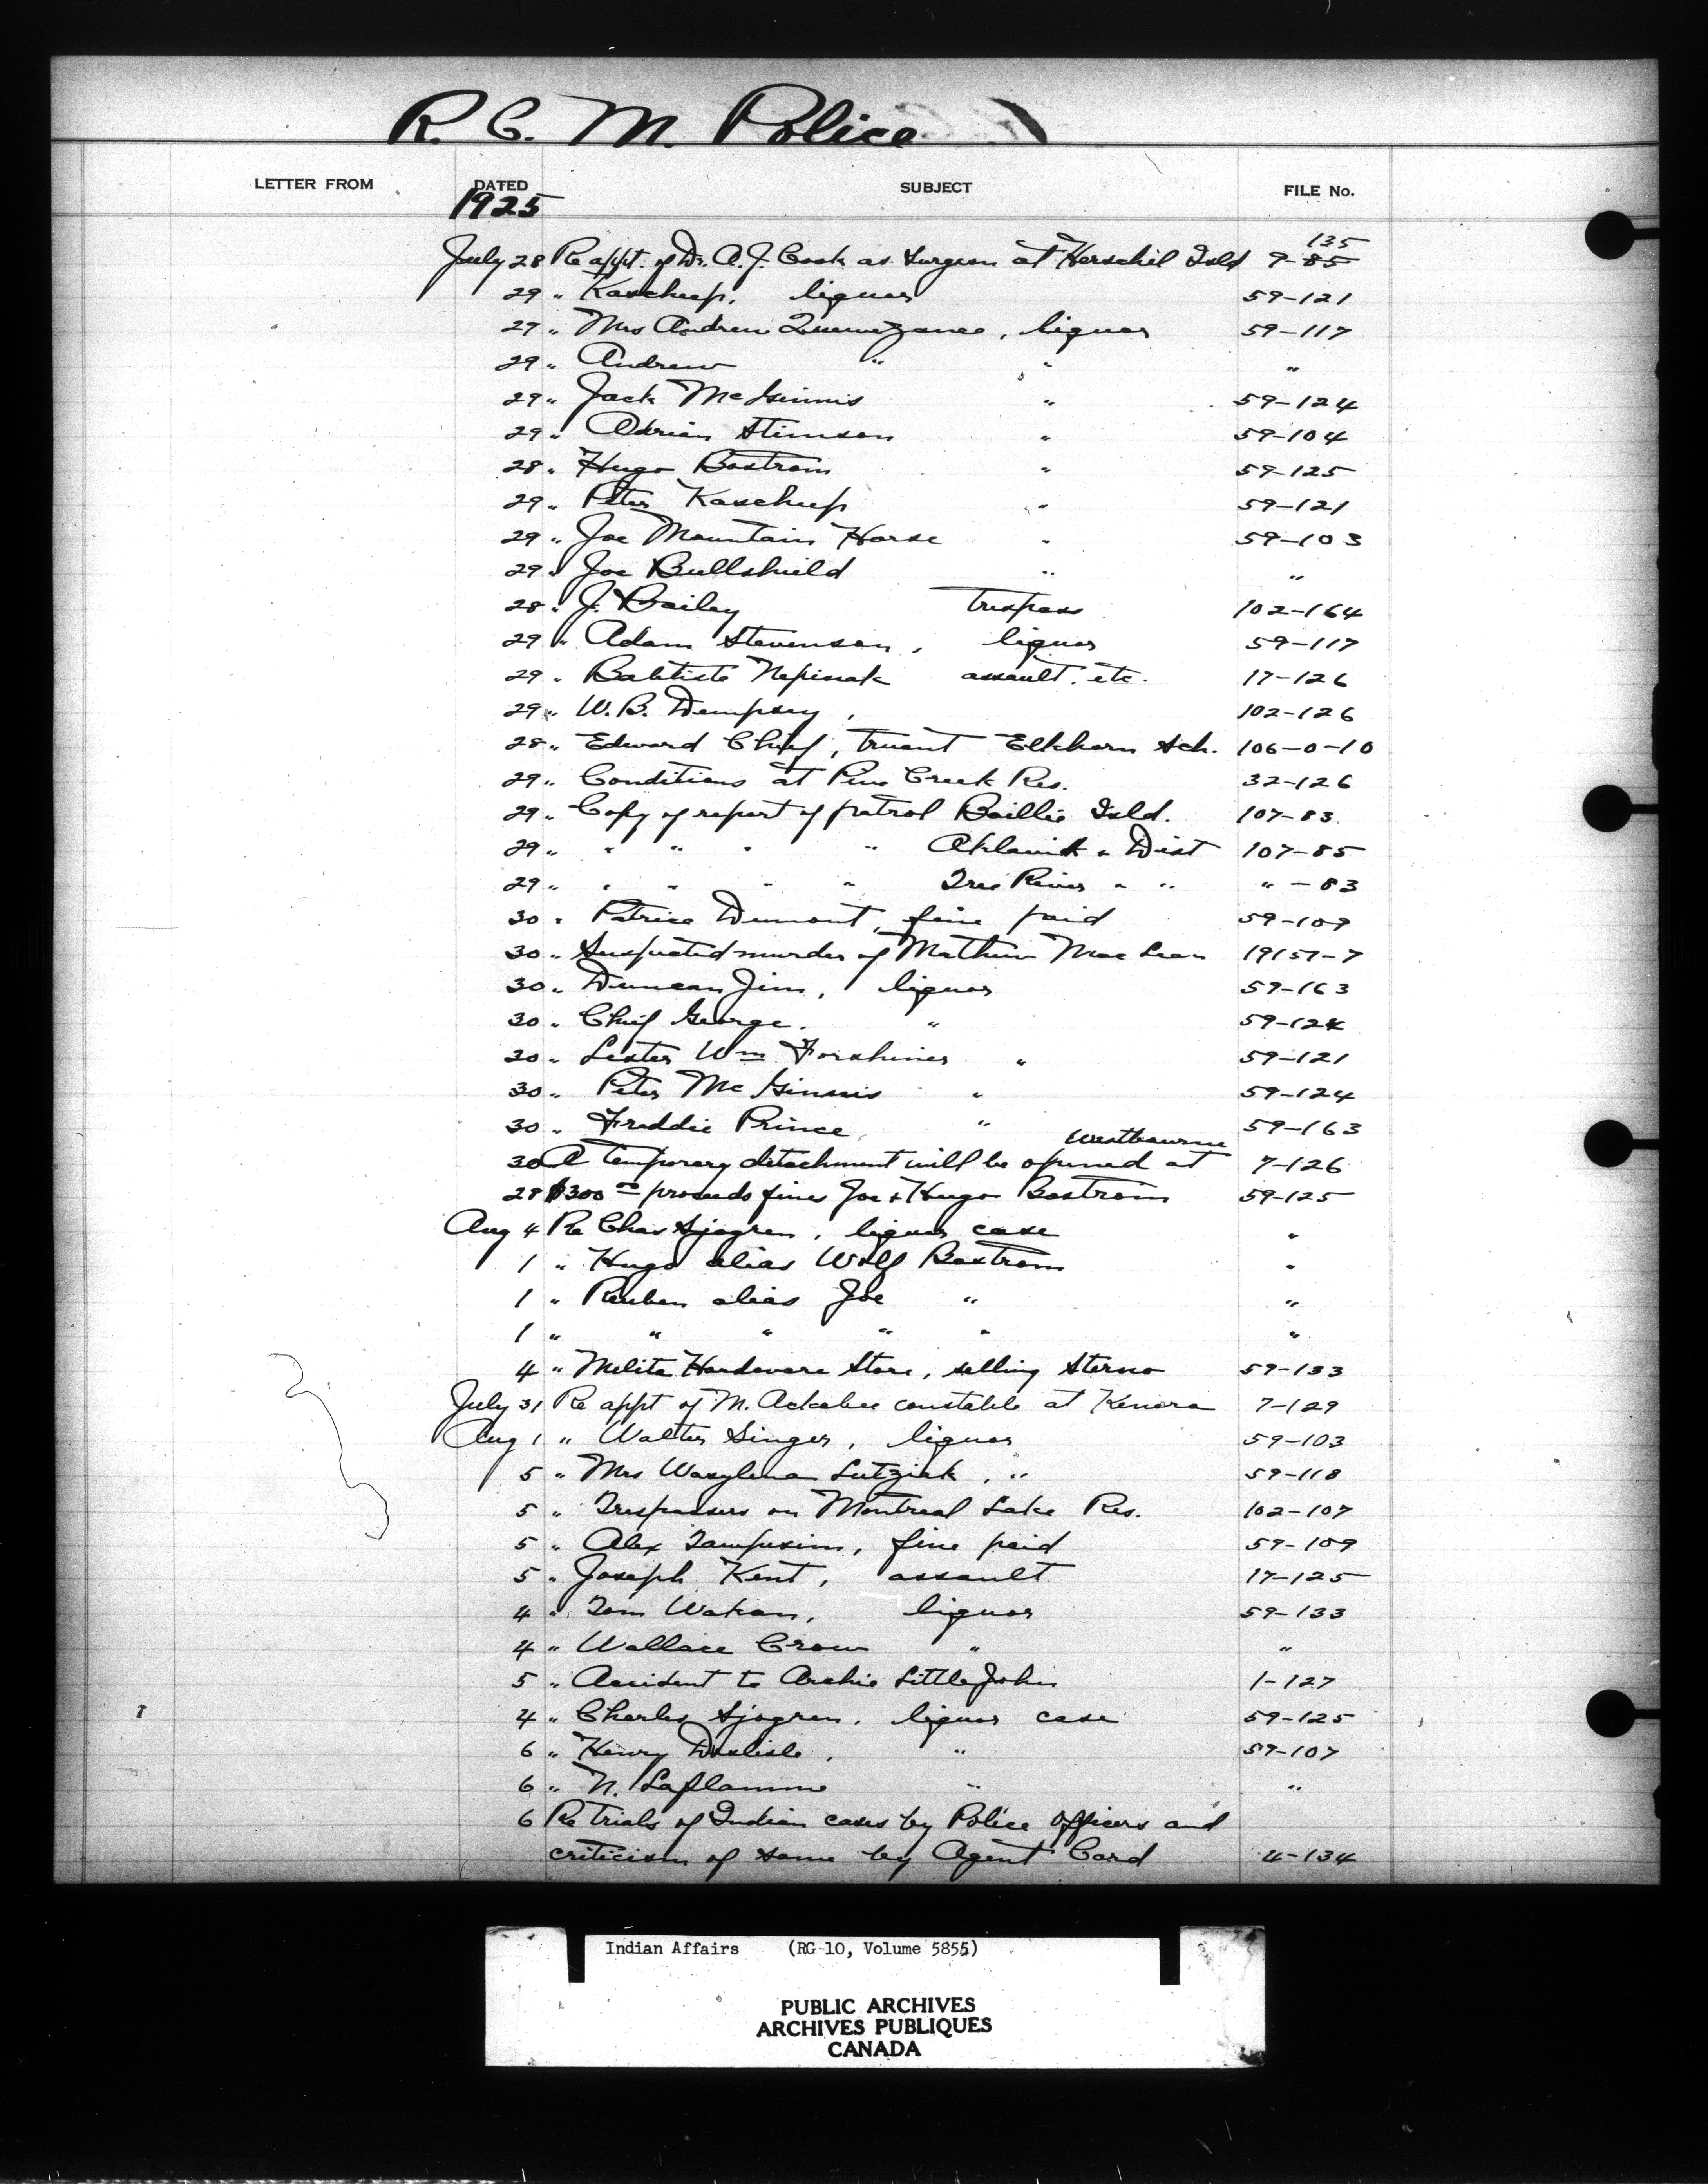 R. C. M. Police
LETTER FROM DATED SUBJECT FILE No.
1925
135
July 28 Re appt. of Dr. A. J. Cook as Surgeon at Herschil Isld 9-85
29 " Kascheep, liquor 59-121
27 " Mrs Andrew liquor 59-117
29 " Andrew " " "
29 " Jack McGinnis " 59-124
29 " Adrian Stimson " 59-104
28 " Hugo Bostrom " 59-125
29 " Peter Kascheep " 59-121
29 " Joe Mountain Horse " 59-103
29 " Joe Bullshield " "
28 " J. Bailey trespass 102-164
29 " Adam Stevenson, liquor 59-117
29 " Babtiste Nepinak assault, etc. 17-126
29 " W. B. Dempsey, 102-126
28 " Edward Chief, truant Elkhorn Sch. 106-0-10
29 " Conditions at Pine Creek Res. 32-126
29 " Copy of report of patrol Baillie Isld. 107-83
29 " " " " " Aklavik " Dist 107-85
29 " " " " " Tree River " " " -83
30 " Patrice Dumont, fine paid 59-109
30 " Suspected murder of Mathew MacLean 19157-7
30 " Duncan Jim, liquor 59-163
30 " Chief George. " 59-124
30 " Lester Wm " 59-121
30 " Peter McGinnis " 59-124
30 " Freddie Prince, " 59-163
Westbourne
30 A temporary detachment will be opened at 7-126
28 $300 00 proceeds fines Joe & Hugo Bostrom 59-125
Aug 4 Re Chas Sjogren, liquor case "
1 " Hugo alias Wolf Bostrom "
1 " Reuben alias Joe " "
1 " " " " " "
4 " Melita Hardware Store, selling Sterno 59-133
July 31 Re appt of M. Ackabee constable at Kenora 7-129
Aug 1 " Walter Singer, liquor 59-103
5 " Mrs Wasylena Lutziak, " 59-118
5 " Trespassers on Montreal Lake Res. 102-107
5 " Alex fine paid 59-109
5 " Joseph Kent, assault 17-125
4 " Tom Watson, liquor 59-133
4 " Wallace Crow " "
5 " Accident to Archie LittleJohn 1-127
4 " Charles Sjogren, liquor case 59-125
6 " Henry Deslisle, " 59-107
6 " N. Laflamme " "
6 Re trials of Indian cases by Police Officers and
criticism of same by Agent Card 4-134
Indian Affairs (RG 10, Volume 5855)
PUBLIC ARCHIVES
ARCHIVES PUBLIQUES
CANADA